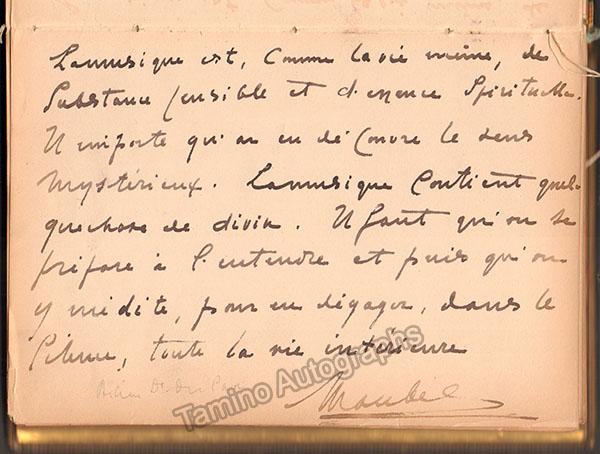 La musique est, Comme la vie même, de
Substance sensible et d'essence Spirituelle.
Il importe qu'on en découvre le sens
mystérieux. La musique Contient quel-
que chose de divin. Il faut qu'on se
prépare à l'entendre et puis qu'on
y médite, pour en dégager, dans le
Silence, toute la vie intérieure
Maubel
Tamino Autographs